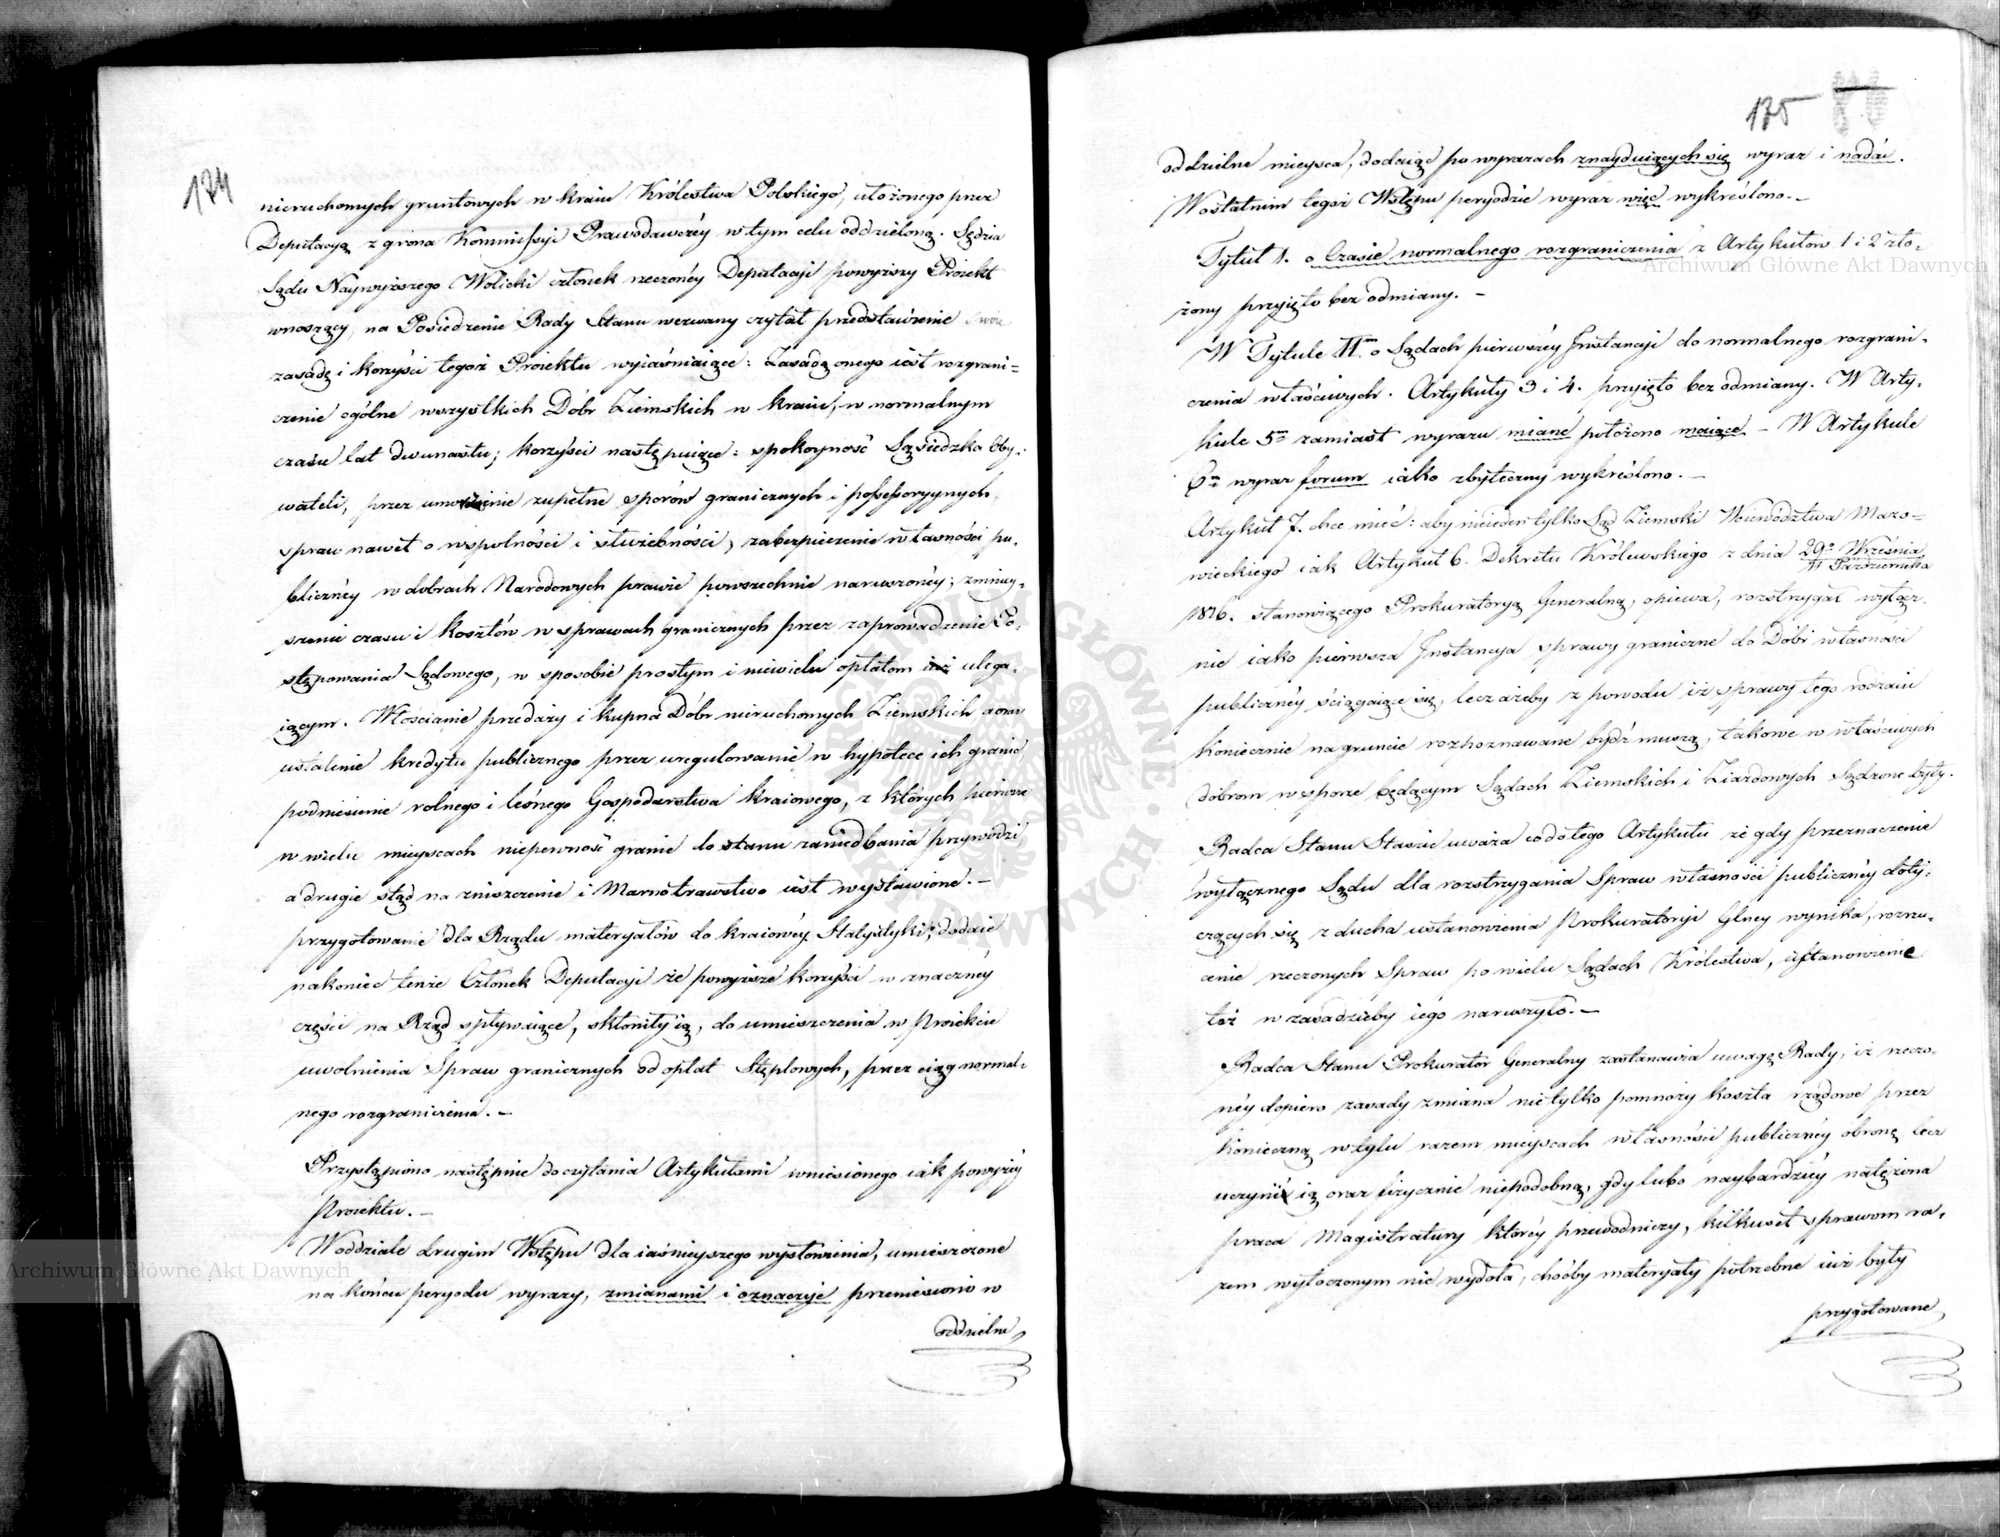 174
nieruchomych gruntowych w kraiu Królestwa Polskiego, ułożonego przez
Deputacyą z grona Kommissyi Prawodawczéy w tym celu oddzieloną. Sędzia
Sądu Naywyższego Wolicki członek rzeczonéy Deputacyi powyższy Proiekt
wnoszący, na Posiedzenie Rady Stanu wezwany czytał przedstawienie
zasadę i korzyści tegoż Proiektu wyiaśniaiące: Zasadą onego iest rozgrani-
czenie ogólne wszystkich Dóbr Ziemskich w kraiu, w normalnym
czasie lat dwunastu; korzyści następuiące: spokoyność Sąsiedzka Oby-
wateli, przez umorzenie zupełne sporów granicznych i possessoryynych
spraw nawet o wspólności i służebności, zabezpieczenie własności pu-
blicznéy w dobrach Narodowych prawie powszechnie naruszonéy; zmniey-
szenie czasu i kosztów w sprawach granicznych przez zaprowadzenie Po-
stępowania Sądowego, w sposobie prostym i niewielu opłatom iuż ulega-
iącym. Włościanie przedaży i kupna Dóbr nieruchomych Ziemskich a oraz
ustalenie kredytu publicznego przez uregulowanie w hypotece ich granic
podniesienie rolnego i leśnego Gospodarstwa kraiowego, z których pierwsze
w wielu mieyscach niepewność granic do stanu zaniedbania przywodzi,
a drugie stąd na zniszczenie i Marnotrawstwo iest wystawione. -
przygotowanie dla Rządu materyałów do kraiowéy Statystyki; dodaie
nakoniec tenże Członek Deputacyi że powyższe korzyści w znacznéy
części na Rząd spływaiące, skłoniły ią, do umieszczenia w Proiekcie
uwolnienia Spraw granicznych od opłat Stęplowych, przez ciąg normal-
nego rozgraniczenia. -
Przystąpiono następnie do czytania Artykułami wniesionego iak powyżéy
Proiektu. -
W oddziale drugim Wstępu dla iaśnieyszego wysłowienia, umieszczone
na końcu peryodu wyrazy, zmianami i oznaczyć przeniesiono w
oddzielne
175
oddzielne mieysca, dodaiąc po wyrazach znayduiących się wyraz i nadać.
W ostatnim tegoż Wstępu peryodzie wyraz więc wykreślono. -
Tytuł I. o Czasie normalnego rozgraniczenia z Artykułów 1 i 2 zło-
żony przyięto bez odmiany. -
W Tytule II. o Sądach pierwszéy Instancyi do normalnego rozgrani-
czenia właściwych. Artykuły 3 i 4. przyięto bez odmiany. W Arty-
kule 5m zamiast wyrazu miané położono maiące - W Artykule
6m wyraz forum iako zbyteczny wykreślono. -
Artykuł 7. chce mieć: aby nieieden tylko Sąd Ziemski Woiewództwa Mazo-
wieckiego iak Artykuł 6. Dekretu Królewskiego z dnia 29o Września
11 Października
1816. stanowiącego Prokuratoryą Generalną, opiewa, rozstrzygał wyłącz-
nie iako pierwsza Instancya sprawy graniczne do Dóbr własności
publicznéy ściągaiące się, lecz ażeby z powodu iż sprawy tego rodzaiu
koniecznie na gruncie rozpoznawane bydź muszą, takowe w właściwych
dobrom w sporze będącym Sądach Ziemskich i Ziazdowych Sądzone były.
Radca Stanu Staszic uważa co do tego Artykułu że gdy przeznaczenie
wyłącznego Sądu dla rozstrzygania Spraw własności publicznéy doty-
czących się z ducha ustanowienia Prokuratoryi Glney wynika, rozrzu-
cenie rzeczonych Spraw po wielu Sądach Królestwa, ustanowienie
toż w zasadzieby iego naruszyło. -
Radca Stanu Prokurator Generalny zastanawia uwagę Rady, iż rzeczo-
néy dopiero zasady zmiana nie tylko pomnoży koszta rządowe przez
konieczną w tylu razem mieyscach własności publicznéy obronę lecz
uczyni ią oraz fizycznie niepodobną, gdy lubo naybardziéy natężona
praca Magistratury któréy przewodniczy, kilkuset sprawom ra-
zem wytoczonym nie wydoła, choćby materyały potrzebne iuż były
przygotowane
Archiwum Główne Akt Dawnych
Archiwum Główne Akt Dawnych
ARCHIWUM GŁÓWNE AKT DAWNYCH